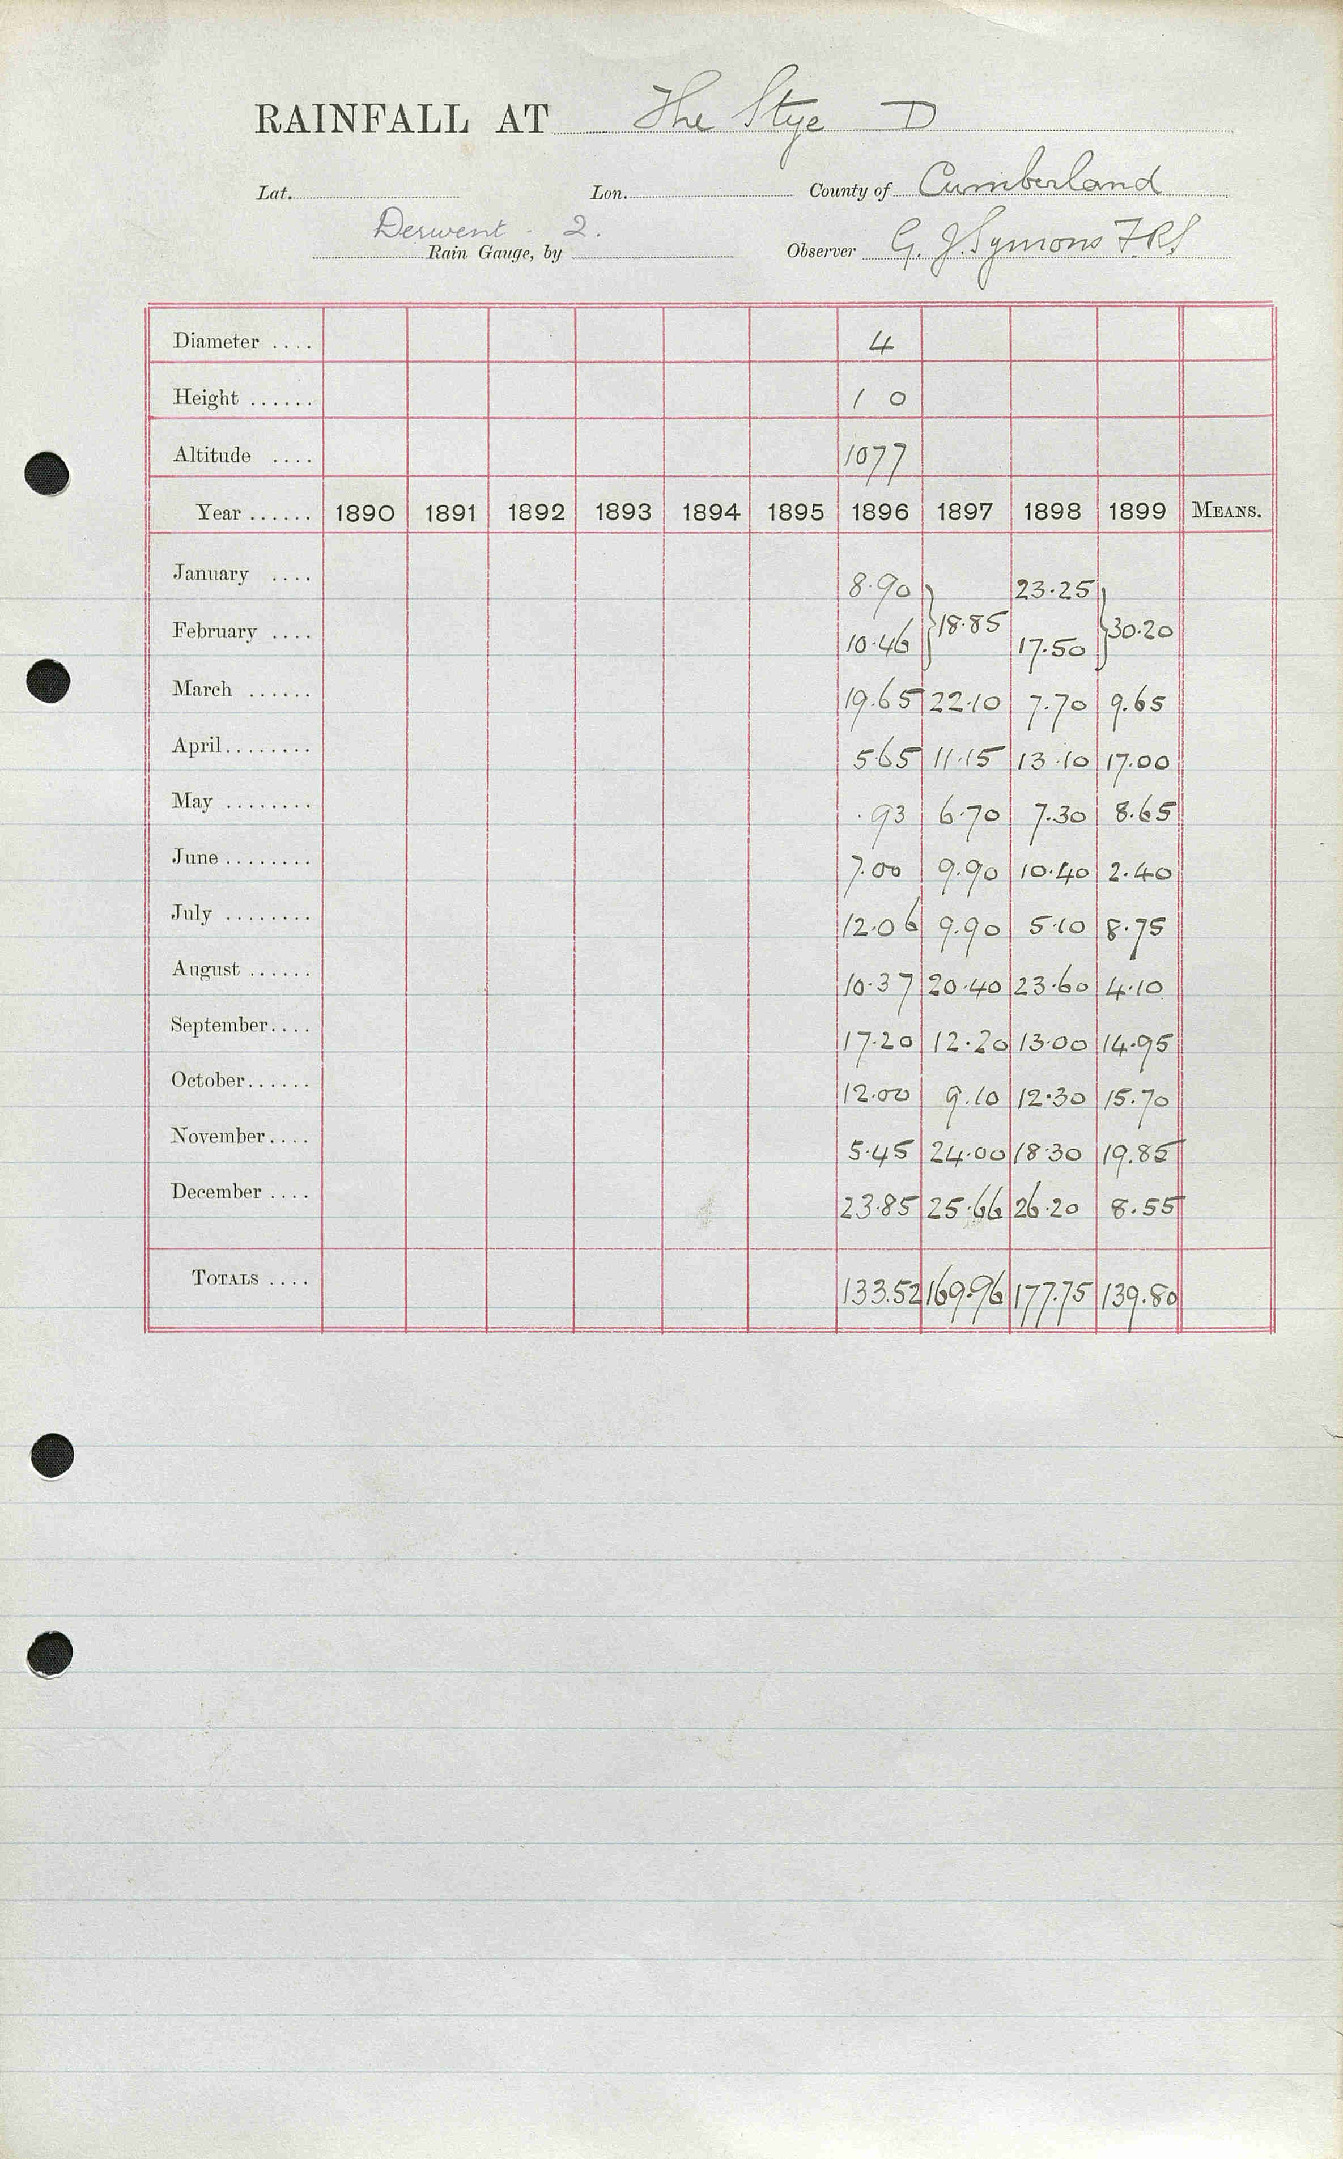 RAINFALL AT The Stye D
Lat. Lon. County of Cumberland
Derwent - 2.
Rain Gauge, by Observer G. J. Symons FRS
Diameter .... 4
Height ...... 1 0
Altitude .... 1077
Year ...... 1890 1891 1892 1893 1894 1895 1896 1897 1898 1899 MEANS.
January .... 8.90 23.25
February .... 10.46 } 18.85 17.50 } 30.20
March ...... 19.65 22.10 7.70 9.65
April ........ 5.65 11.15 13.10 17.00
May ........ .93 6.70 7.30 8.65
June ........ 7.00 9.90 10.40 2.40
July ........ 12.06 9.90 5.10 8.75
August ...... 10.37 20.40 23.60 4.10
September .... 17.20 12.20 13.00 14.95
October ...... 12.00 9.10 12.30 15.70
November .... 5.45 24.00 18.30 19.85
December .... 23.85 25.66 26.20 8.55
TOTALS .... 133.52 169.96 177.75 139.80